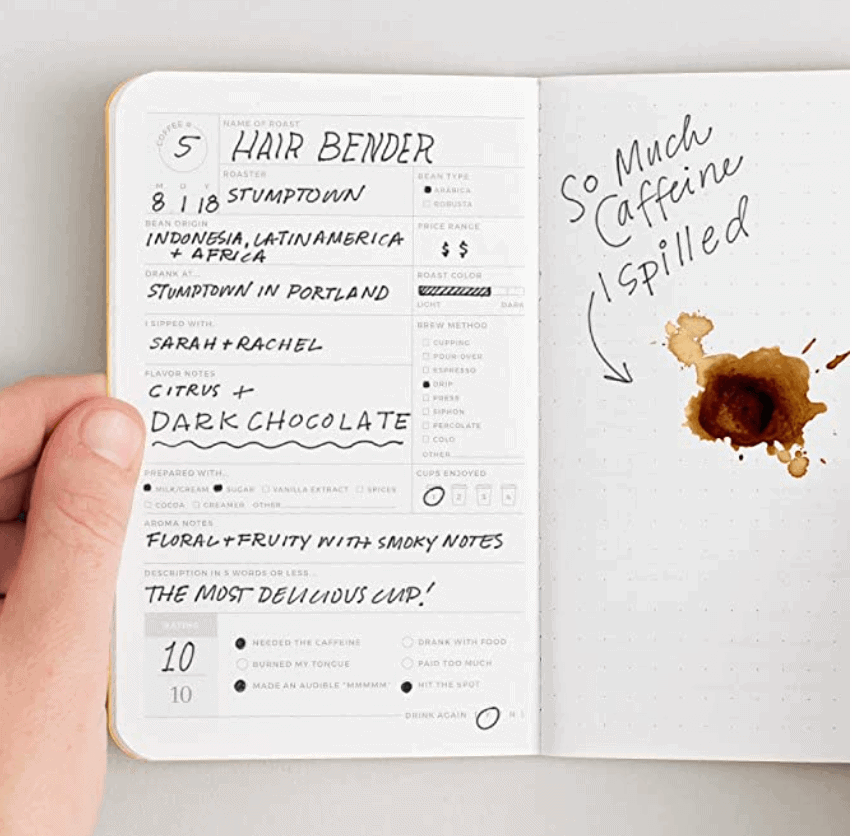 COFFEE #
5
NAME OF ROAST
HAIR BENDER
M D Y
8 1 18
ROASTER
STUMPTOWN
BEAN TYPE
ARABICA
ROBUSTA
BEAN ORIGIN
INDONESIA, LATIN AMERICA
+ AFRICA
PRICE RANGE
$ $
DRANK AT...
STUMPTOWN IN PORTLAND
ROAST COLOR
LIGHT DARK
I SIPPED WITH...
SARAH + RACHEL
BREW METHOD
CUPPING
POUR-OVER
ESPRESSO
DRIP
PRESS
SIPHON
PERCOLATE
COLD
OTHER
FLAVOR NOTES
CITRUS +
DARK CHOCOLATE
PREPARED WITH...
MILK/CREAM SUGAR VANILLA EXTRACT SPICES
COCOA CREAMER OTHER
CUPS ENJOYED
1 2 3 4
AROMA NOTES
FLORAL + FRUITY WITH SMOKY NOTES
DESCRIPTION IN 5 WORDS OR LESS...
THE MOST DELICIOUS CUP!
RATING
10
10
NEEDED THE CAFFEINE DRANK WITH FOOD
BURNED MY TONGUE PAID TOO MUCH
MADE AN AUDIBLE "MMMMM" HIT THE SPOT
DRINK AGAIN Y N
So Much
Caffeine
I spilled